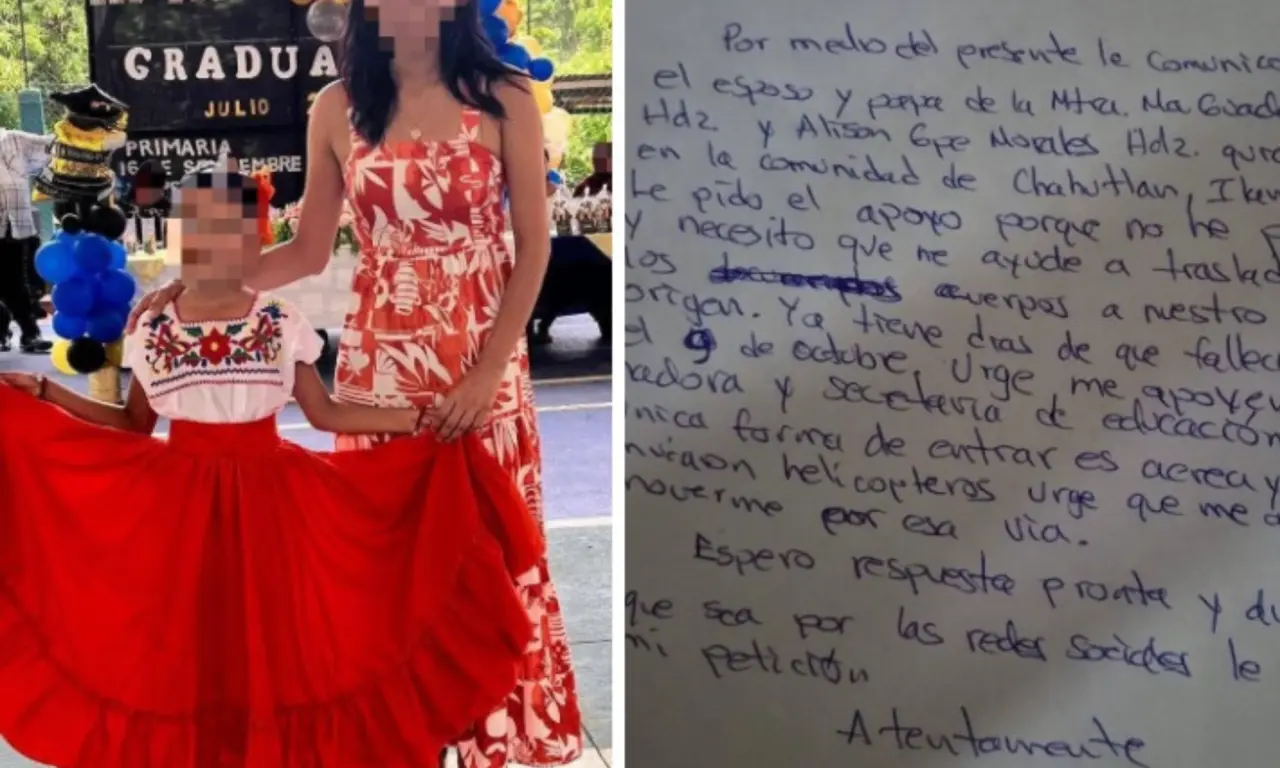 GRADUA
JULIO
PRIMARIA
16 DE SEPTIEMBRE
Por medio del presente le comunico
el esposo y papa de la Mtra. Ma Guad
Hdz. y Alison Gpe Morales Hdz. que
en la comunidad de Chahutlan, Ixe
Le pido el apoyo porque no he p
y necesito que me ayude a traslad
los cuerpos a nuestro
origen. Ya tiene dias de que fallec
el 9 de octubre, Urge me apoyen
nadora y secretaria de educación
nica forma de entrar es aerea y
nviaron helicopteros urge que me
moverme por esa via.
Espero respuesta pronta y
que sea por las redes sociales le
mi petición
Atentamente